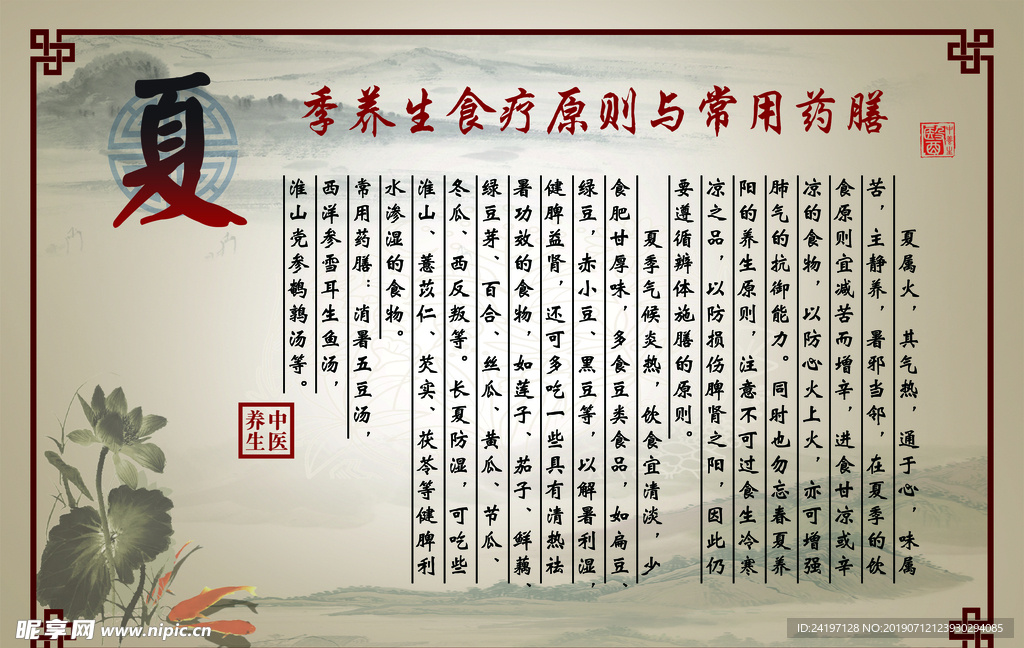 夏
季养生食疗原则与常用药膳
夏属火，其气热，通于心，味属
苦，主静养，暑邪当邻，在夏季的饮
食原则宜减苦而增辛，进食甘凉或辛
凉的食物，以防心火上火，亦可增强
肺气的抗御能力。同时也勿忘春夏养
阳的养生原则，注意不可过食生冷寒
凉之品，以防损伤脾肾之阳，因此仍
要遵循辨体施膳的原则。
夏季气候炎热，饮食宜清淡，少
食肥甘厚味，多食豆类食品，如扁豆、
绿豆，赤小豆、黑豆等，以解暑利湿，
健脾益肾，还可多吃一些具有清热祛
暑功效的食物，如莲子、茄子、鲜藕、
绿豆芽、百合、丝瓜、黄瓜、节瓜、
冬瓜、西反叛等。长夏防湿，可吃些
淮山、薏苡仁、芡实、茯苓等健脾利
水渗湿的食物。
常用药膳：消暑五豆汤，
西洋参雪耳生鱼汤，
淮山党参鹌鹑汤等。
中医
养生
昵享网 www.nipic.cn
ID:24197128 NO:20190712123930294085